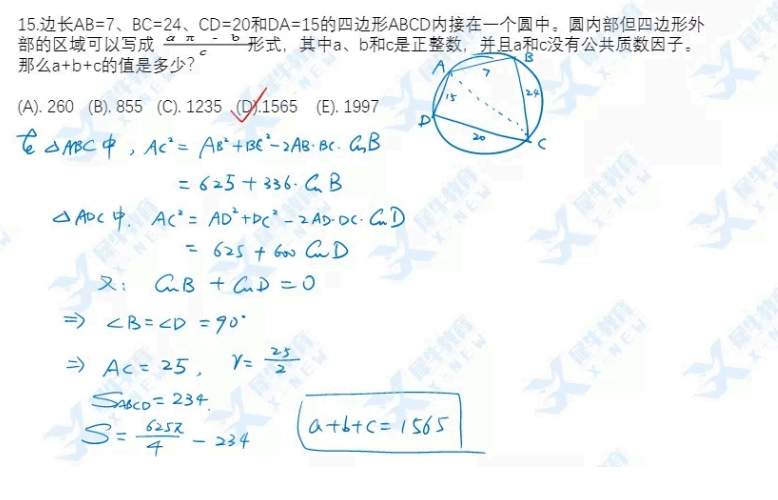 15.边长AB=7、BC=24、CD=20和DA=15的四边形ABCD内接在一个圆中。圆内部但四边形外
部的区域可以写成 (aπ-b)/c 形式，其中a、b和c是正整数，并且a和c没有公共质数因子。
那么a+b+c的值是多少?
(A). 260 (B). 855 (C). 1235 (D).1565 (E). 1997
A 7 B
15 24
D 20 C
在 △ABC中, AC²= AB²+BC²-2AB·BC·CosB
= 625 + 336·Cos B
△ADC中, AC²= AD²+DC²-2AD·DC·CosD
= 625 + 600 CosD
又: CosB + CosD = 0
⇒ ∠B=∠D =90°
⇒ AC = 25, r= 25/2
S_ABCD = 234.
S= 625π/4 - 234
a+b+c = 1565
犀牛教育
X-NEW